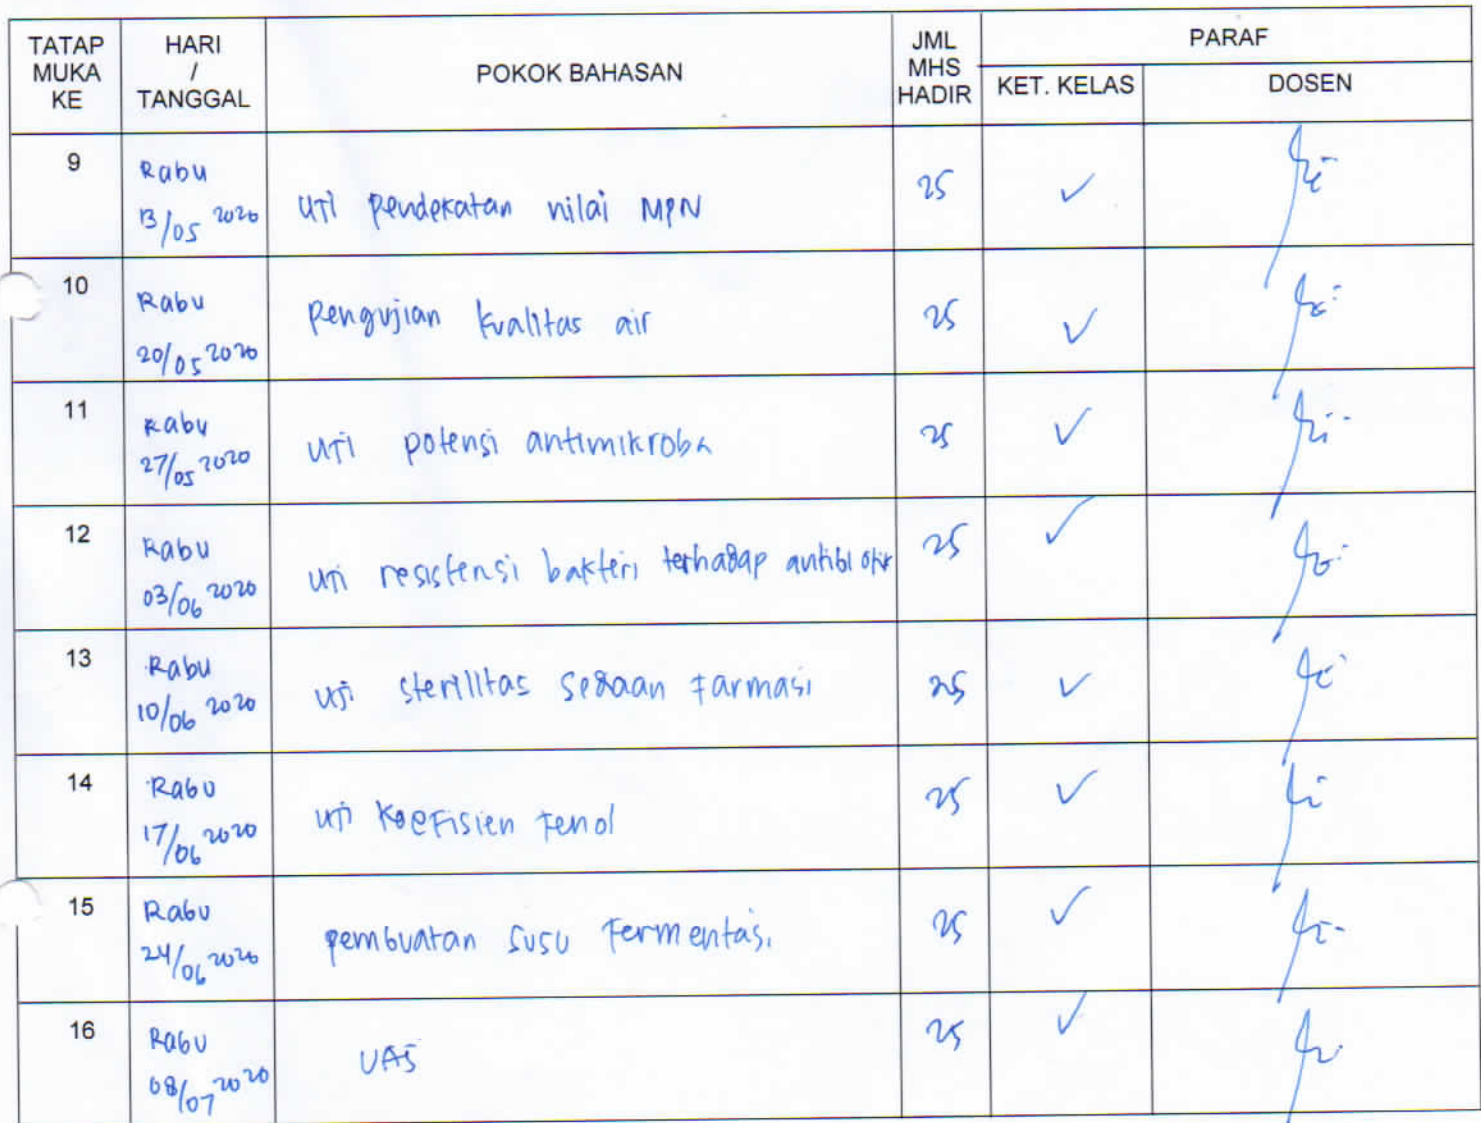 TATAP MUKA KE HARI / TANGGAL POKOK BAHASAN JML MHS HADIR PARAF
KET. KELAS DOSEN
9 Rabu 13/05 2020 Uji pendekatan nilai MPN 25 ✓
10 Rabu 20/05 2020 Pengujian kualitas air 25 ✓
11 Rabu 27/05 2020 Uji potensi antimikroba 25 ✓
12 Rabu 03/06 2020 Uji resistensi bakteri terhadap antibiotik 25 ✓
13 Rabu 10/06 2020 Uji sterilitas sediaan Farmasi 25 ✓
14 Rabu 17/06 2020 Uji Koefisien Fenol 25 ✓
15 Rabu 24/06 2020 pembuatan susu Fermentasi 25 ✓
16 Rabu 08/07 2020 UAS 25 ✓